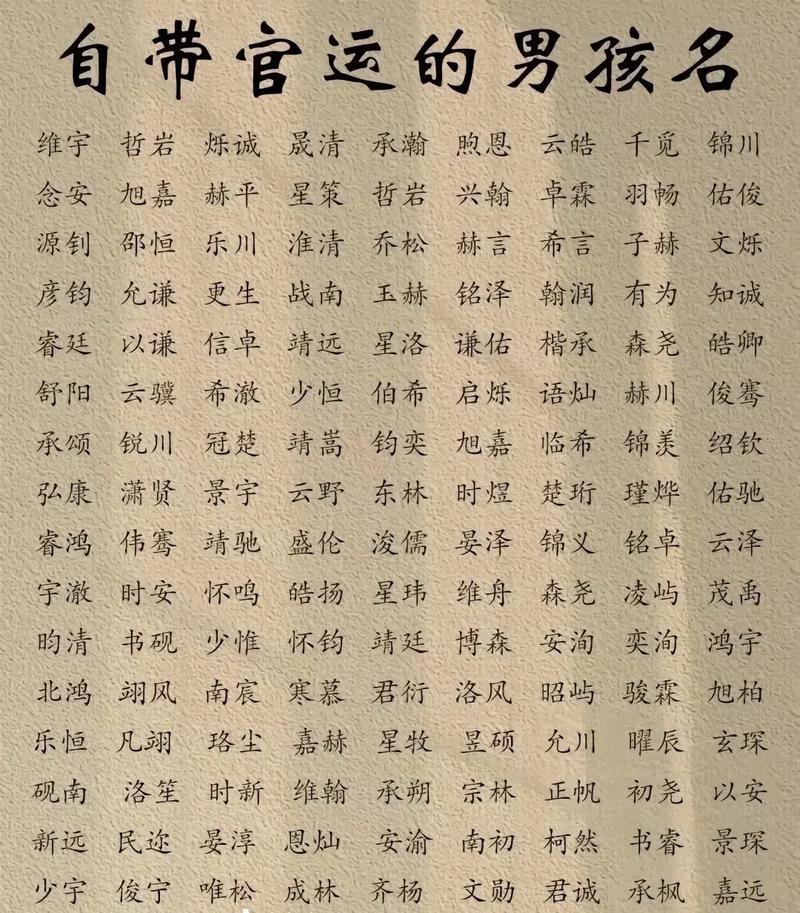 自带官运的男孩名
维宇 哲岩 烁诚 晟清 承瀚 煦恩 云皓 千觅 锦川
念安 旭嘉 赫平 星策 哲岩 兴翰 卓霖 羽畅 佑俊
源钊 邵恒 乐川 淮清 乔松 赫言 希言 子赫 文烁
彦钧 允谦 更生 战南 玉赫 铭泽 翰润 有为 知诚
睿廷 以谦 信卓 靖远 星洛 谦佑 楷承 森尧 皓卿
舒阳 云骥 希澈 少恒 伯希 启烁 语灿 赫川 俊骞
承颂 锐川 冠楚 靖嵩 钧奕 旭嘉 临希 锦羡 绍钦
弘康 潇贤 景宇 云野 东林 时煜 楚珩 瑾烨 佑驰
睿鸿 伟骞 靖驰 盛伦 浚儒 晏泽 锦义 铭卓 云泽
宇澈 时安 怀鸣 皓扬 星玮 维舟 森尧 凌屿 茂禹
昀清 书砚 少惟 怀钧 靖廷 博森 安洵 奕洵 鸿宇
北鸿 翊风 南宸 寒慕 君衍 洛风 昭屿 骏霖 旭柏
乐恒 凡翊 珞尘 嘉赫 星牧 昱硕 允川 曜辰 玄琛
砚南 洛笙 时新 维翰 承朔 宗林 正帆 初尧 以安
新远 民迩 晏淳 恩灿 安渝 南初 柯然 书睿 景琛
少宇 俊宁 唯松 成林 齐杨 文勋 君诚 承枫 嘉远